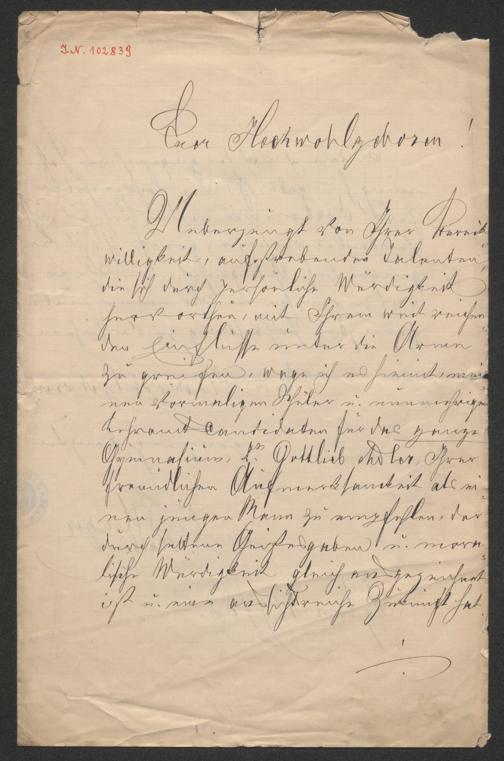 I.N. 102839
Euer Hochwohlgeboren!
Ueberzeugt von Ihrer Bereit
willigkeit, aufstrebenden Talenten,
die sich durch persönliche Würdigkeit
hervorthun, mit Ihrem weit reichen
den Einflusse unter die Arme
zu greifen, wage ich es hiemit, mei
nen vormaligen Schüler u. nunmehrigen
Lehramtscandidaten für das ganze
Gymnasium, Hrn Gottlieb Adler, Ihrer
freundlichen Aufmerksamkeit als ei
nen jungen Mann zu empfehlen, der
durch seltene Geistesgaben u. mora
lische Würdigkeit gleich ausgezeichnet
ist u. eine aussichtsreiche Zukunft hat.